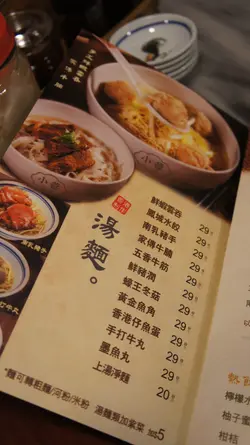 湯麵。
鮮蝦雲吞 29
鳳城水餃 29
南乳豬手 29
家傳牛腩 29
五香牛筋 29
鮮豬潤 29
蠔王冬菇 29
黃金魚角 29
香港仔魚蛋 29
手打牛丸 29
墨魚丸 29
上湯淨麵 20
*麵可轉粗麵/河粉/米粉 湯麵類加紫菜 5
南乳豬手
檸檬水
柚子
柑桔